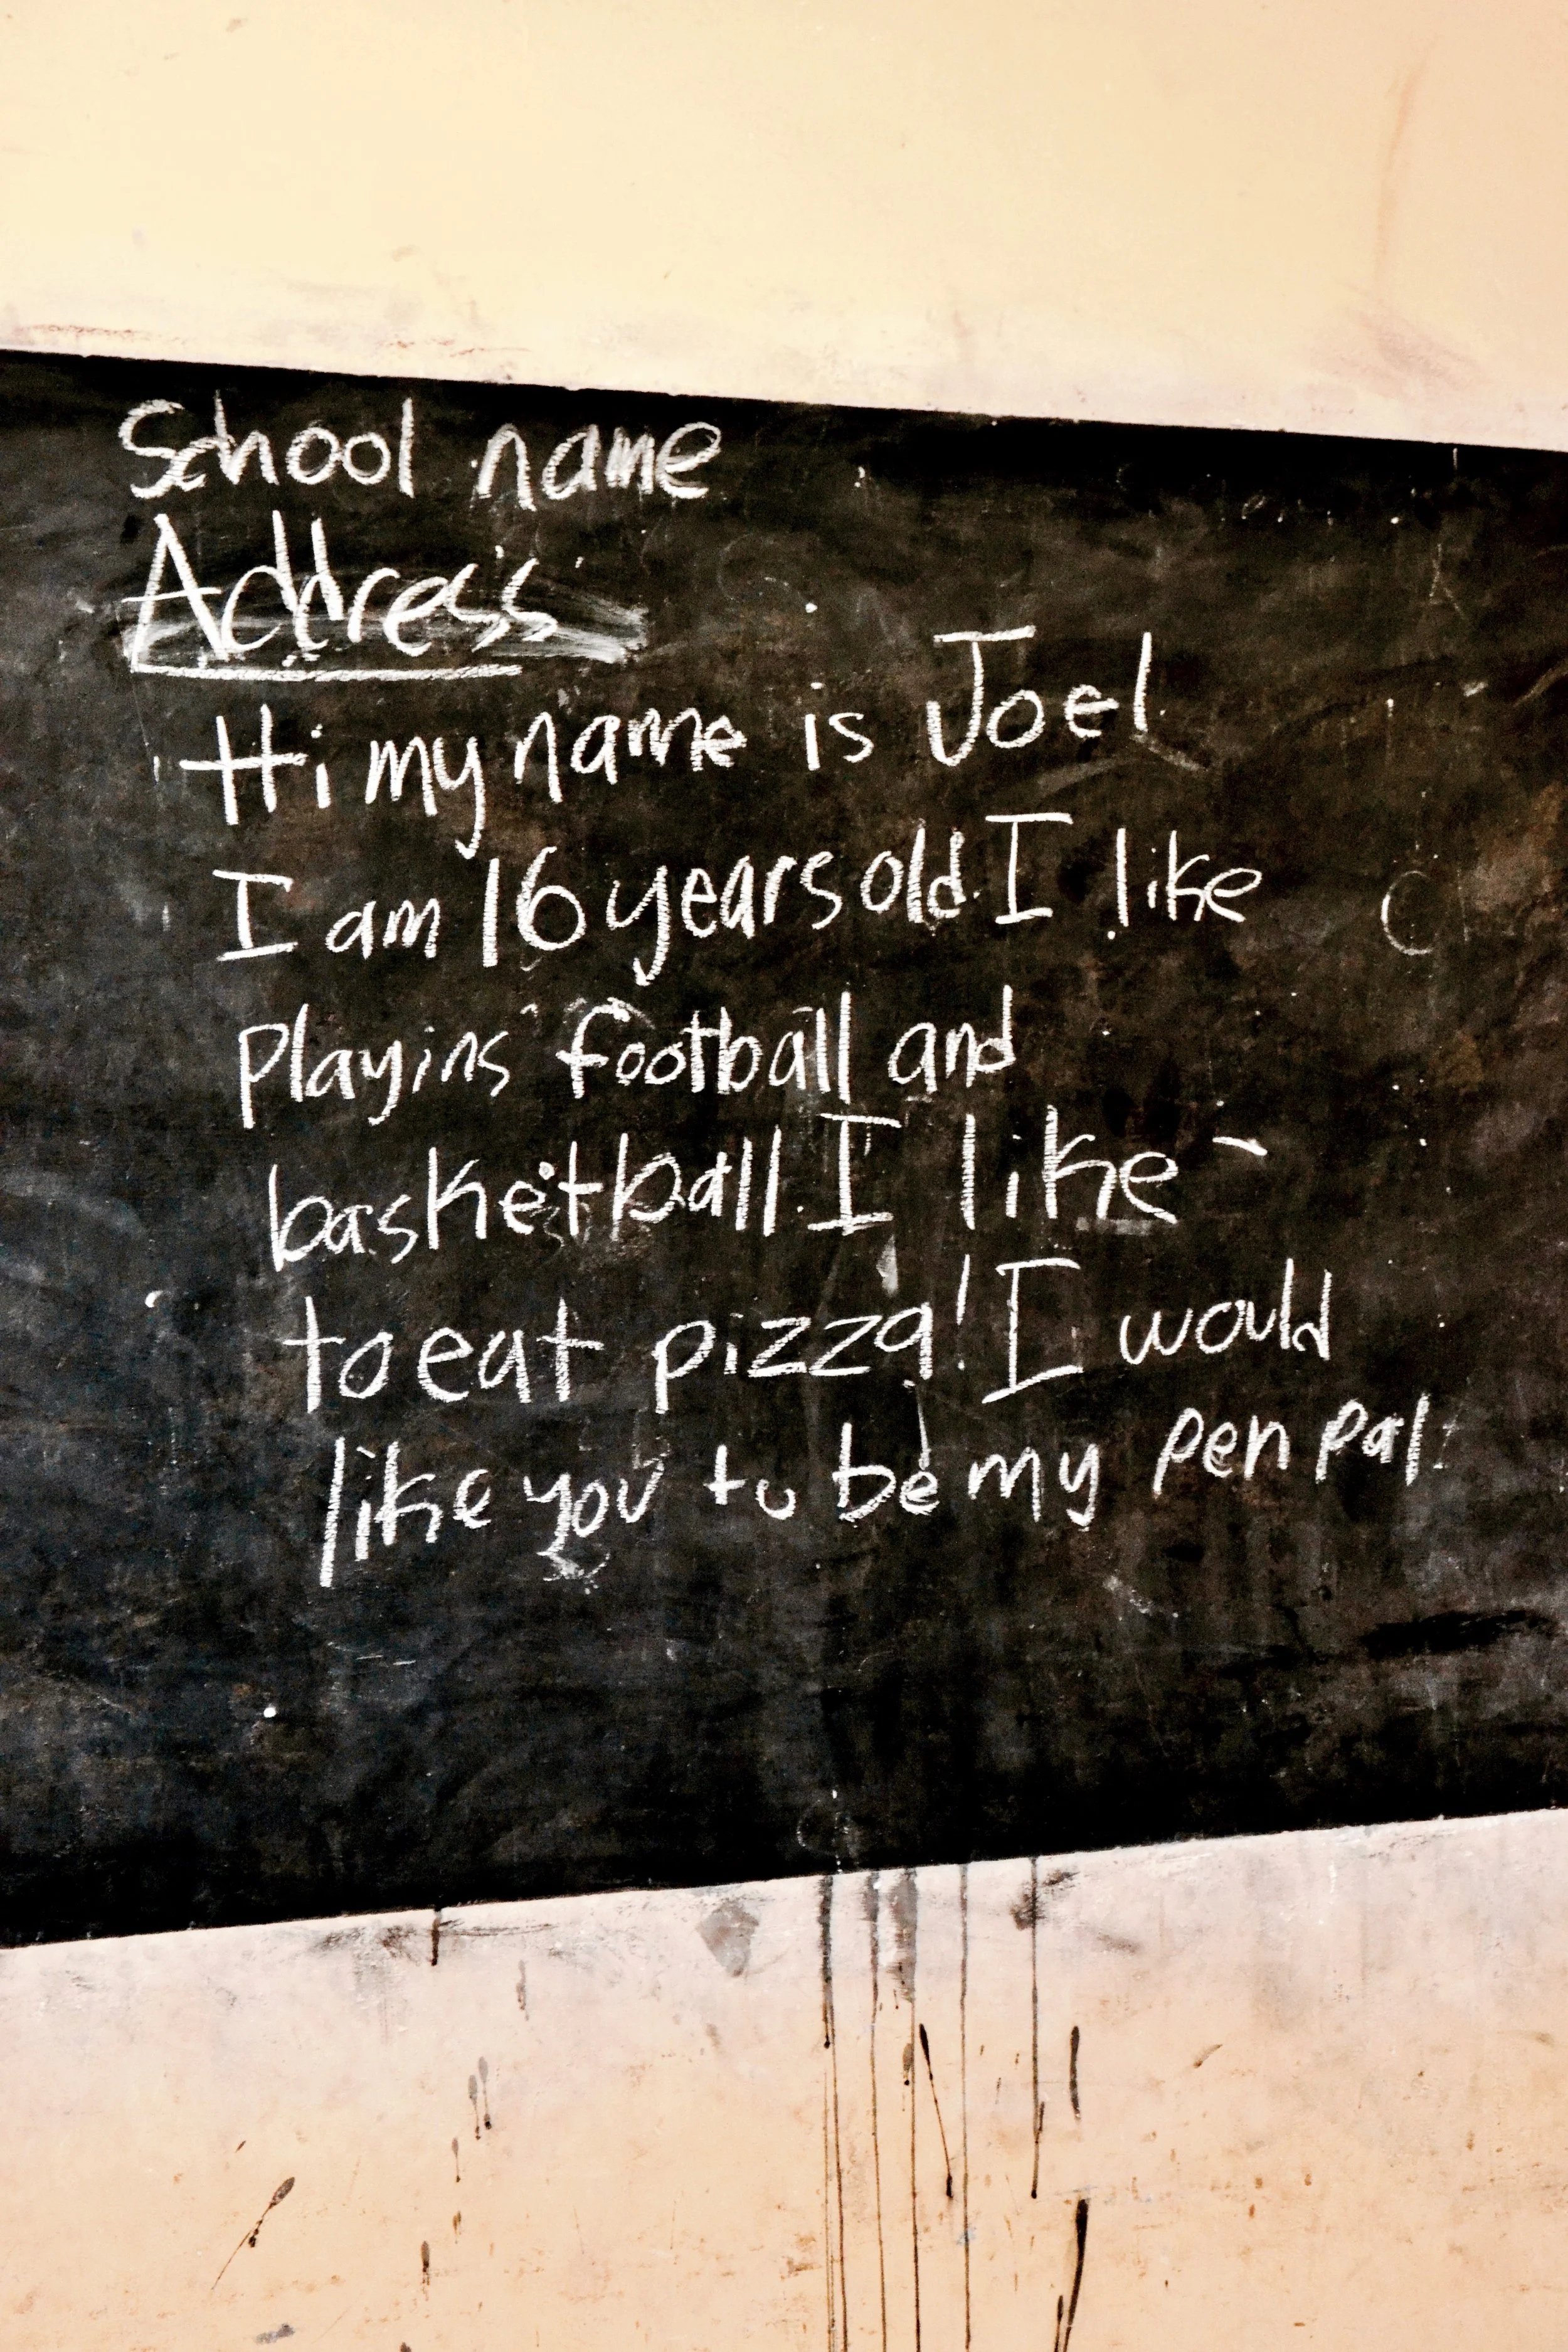 School name
Address
Hi my name is Joel
I am 16 years old. I like
Playing football and
basketball. I like
to eat pizza! I would
like you to be my pen pal.